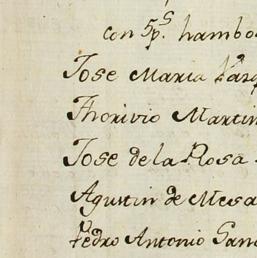 con 5p.s hambo
Jose Maria Vazq
Thorivio Martin
Jose de la Rosa
Agustin de Mesa
Pedro Antonio San